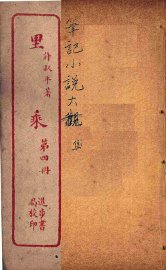 筆記小說大觀 集
許叔平著
里乘
第四冊
進步書局校印